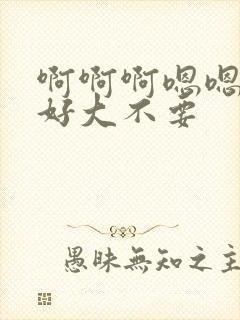 啊啊啊嗯嗯
好大不要
愚昧無知之主